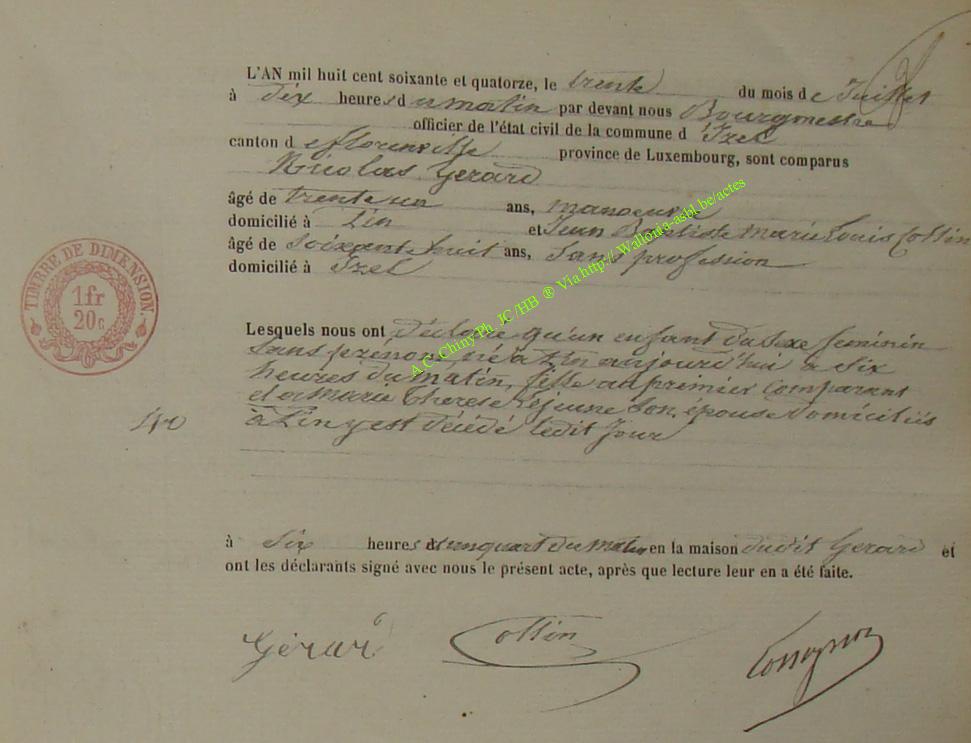 L'AN mil huit cent soixante et quatorze, le trente du mois de Juillet
à dix heures du matin par devant nous Bourgmestre
officier de l'état civil de la commune d'Izel
canton de florenville province de Luxembourg, sont comparus
Nicolas Gerard
âgé de trente un ans, manoeuvre
domicilié à Pin et Jean Baptiste Marie Louis Collin
âgé de Soixante huit ans, Sans profession
domicilié à Izel
TIMBRE DE DIMENSION.
1 fr
20 c
Lesquels nous ont déclaré qu'un enfant du sexe feminin
Sans prénom, né à Pin aujourd'hui à six
heures du Matin, fille au premier Comparant
et à Marie Thérèse Lejeune son épouse domiciliés
à Pin y est décédé ledit Jour
à Six heures et un quart du matin en la maison dudit Gerard et
ont les déclarants signé avec nous le présent acte, après que lecture leur en a été faite.
Gérard Collin
A.C. Chiny Ph. JC /HB ® Via http://Wallonia-asbl.be/actes